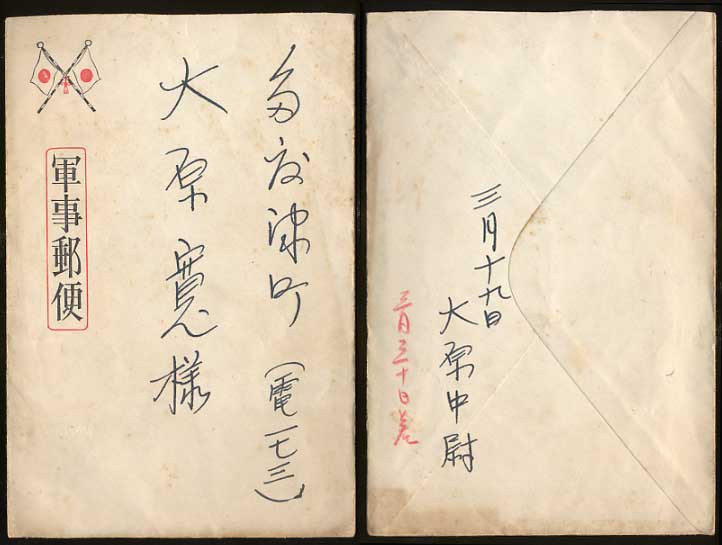 多度津町(電一七三)
大原寛様
軍事郵便
三月十九日
大原中尉
三月三十日着